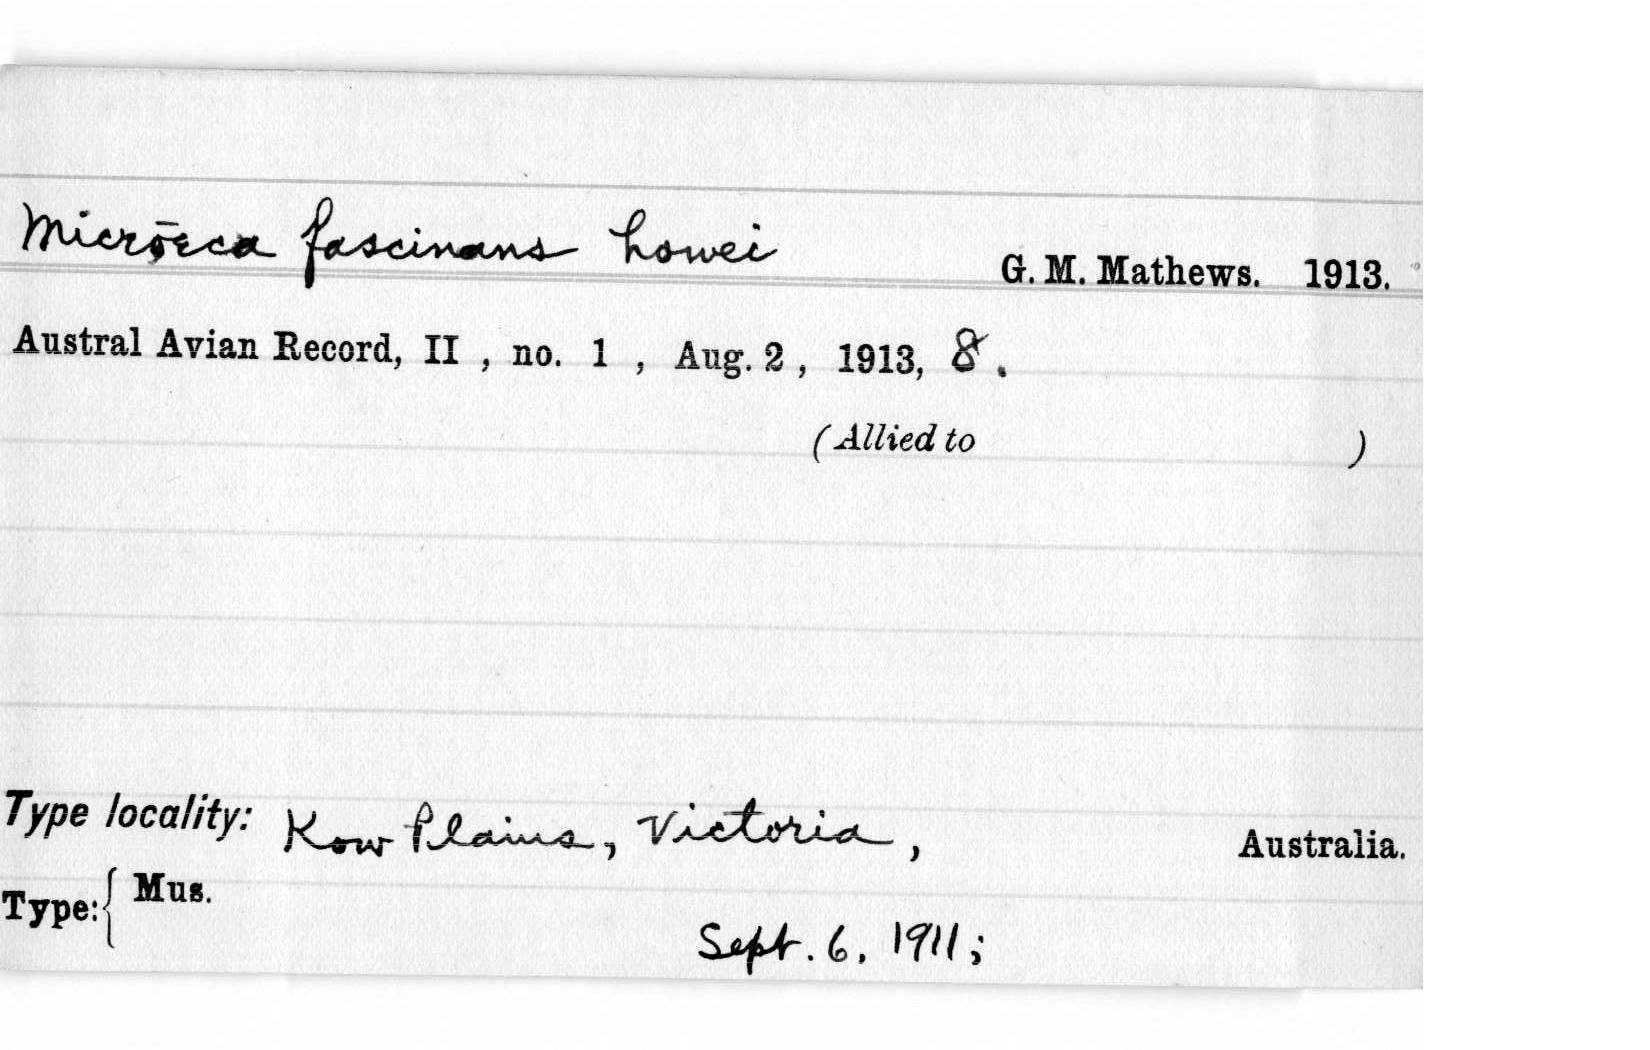 Microeca fascinans howei G. M. Mathews. 1913.
Austral Avian Record, II , no. 1 , Aug. 2 , 1913, 8.
(Allied to )
Type locality: Kow Plains, Victoria, Australia.
Type: { Mus.
Sept. 6, 1911;